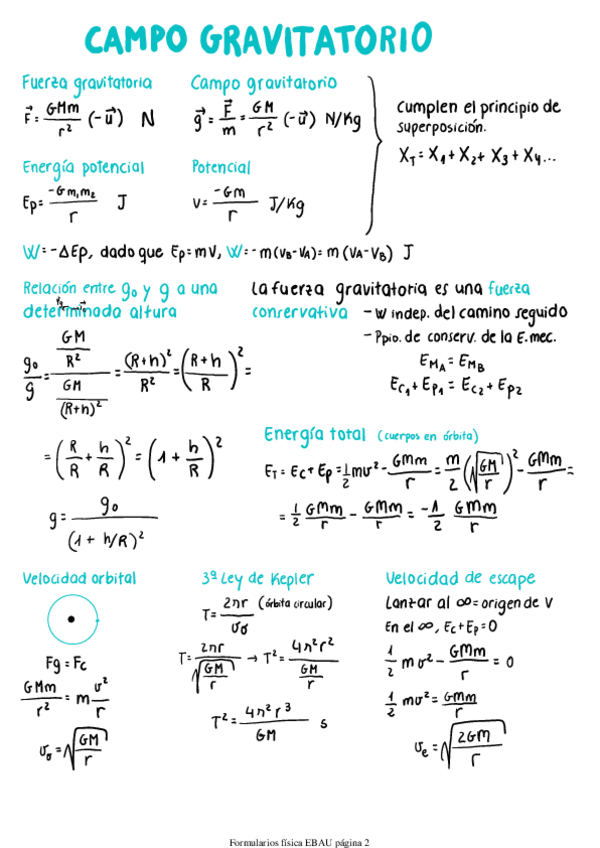 CAMPO GRAVITATORIO
Fuerza gravitatoria
F⃗ = GMm/r² (-u⃗) N
Campo gravitatorio
g⃗ = F⃗/m = GM/r² (-u⃗) N/Kg
Cumplen el principio de
superposición.
X_T = X₁ + X₂ + X₃ + X₄...
Energía potencial
Ep = -Gm₁m₂/r J
Potencial
V = -Gm/r J/Kg
W = -ΔEp, dado que Ep = mV, W = -m(V_B-V_A) = m(V_A-V_B) J
Relación entre g₀ y g a una
determinada altura
g₀/g = (GM/R²)/(GM/(R+h)²) = (R+h)²/R² = ((R+h)/R)² =
= (R/R + h/R)² = (1 + h/R)²
g = g₀/(1 + h/R)²
La fuerza gravitatoria es una fuerza
conservativa - W indep. del camino seguido
- Ppio. de conserv. de la E.mec.
E_MA = E_MB
Ec₁ + Ep₁ = Ec₂ + Ep₂
Energía total (cuerpos en órbita)
E_T = Ec + Ep = 1/2 mv² - GMm/r = m/2 (√(GM/r))² - GMm/r =
= 1/2 GMm/r - GMm/r = -1/2 GMm/r
Velocidad orbital
Fg = Fc
GMm/r² = m v²/r
v₀ = √(GM/r)
3ª Ley de Kepler
T = 2πr/v₀ (órbita circular)
T = 2πr/√(GM/r) → T² = 4π²r²/(GM/r)
T² = 4π²r³/GM s
Velocidad de escape
Lanzar al ∞ = origen de V
En el ∞, Ec + Ep = 0
1/2 mv² - GMm/r = 0
1/2 mv² = GMm/r
v_e = √(2GM/r)
Formularios física EBAU página 2